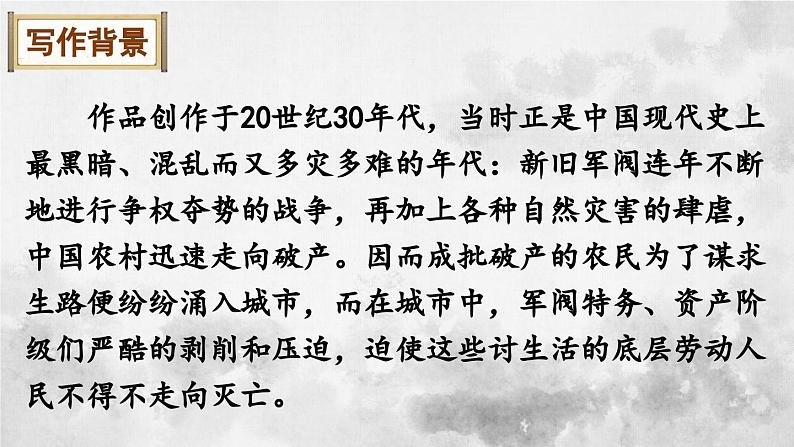 写作背景
作品创作于20世纪30年代，当时正是中国现代史上
最黑暗、混乱而又多灾多难的年代：新旧军阀连年不断
地进行争权夺势的战争，再加上各种自然灾害的肆虐，
中国农村迅速走向破产。因而成批破产的农民为了谋求
生路便纷纷涌入城市，而在城市中，军阀特务、资产阶
级们严酷的剥削和压迫，迫使这些讨生活的底层劳动人
民不得不走向灭亡。